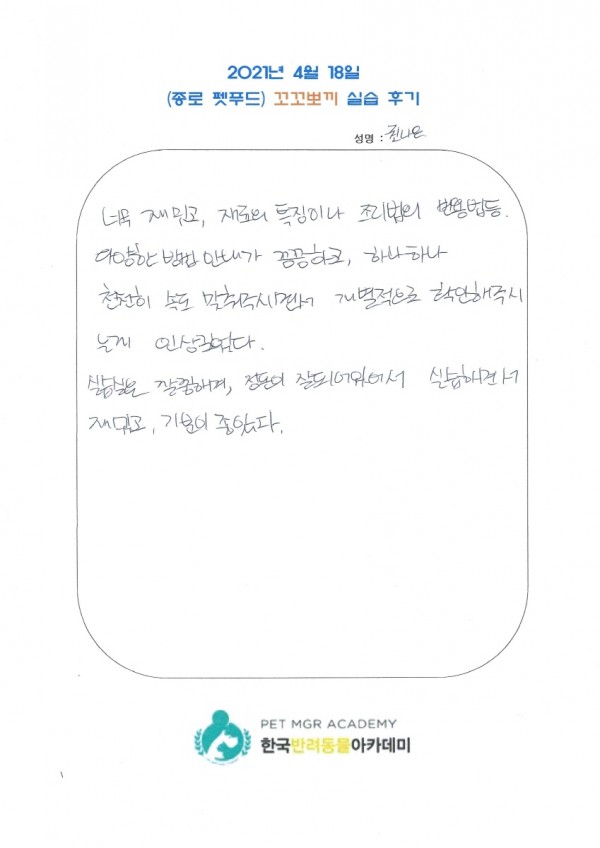 2021년 4월 18일
(종로 펫푸드) 꼬꼬뽀끼 실습 후기
성명 :
너무 재밌고, 재료의 특징이나 조리법의 변용법등.
다양한 방법 안내가 꼼꼼하고, 하나하나
천천히 속도 맞춰주시면서 개별적으로 확인해주시
는게 인상깊었다.
실습실은 깔끔하며, 정돈이 잘되어있어서 실습하면서
재밌고, 기분이 좋았다.
PET MGR ACADEMY
한국반려동물아카데미